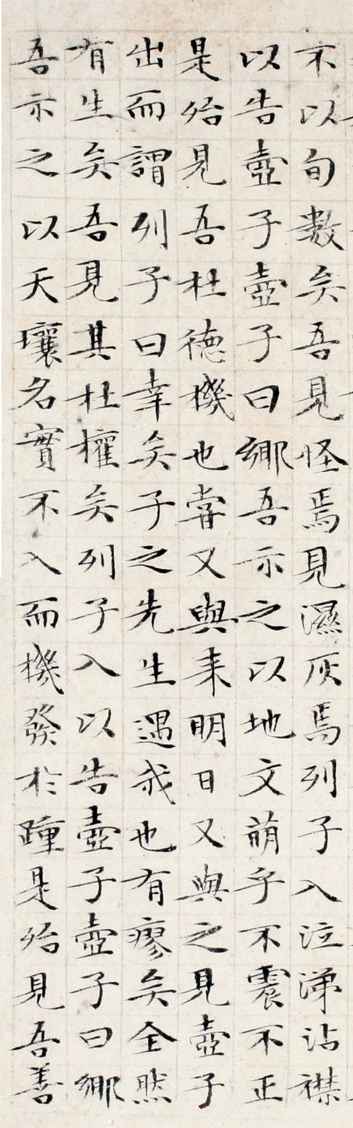 不以旬數矣吾見怪焉見濕灰焉列子入泣涕沾襟
以告壺子壺子曰鄉吾示之以地文萌乎不震不正
是殆見吾杜德機也嘗又與来明日又與之見壺子
出而謂列子曰幸矣子之先生遇我也有瘳矣全然
有生矣吾見其杜權矣列子入以告壺子壺子曰鄉
吾示之以天壤名實不入而機發於踵是殆見吾善